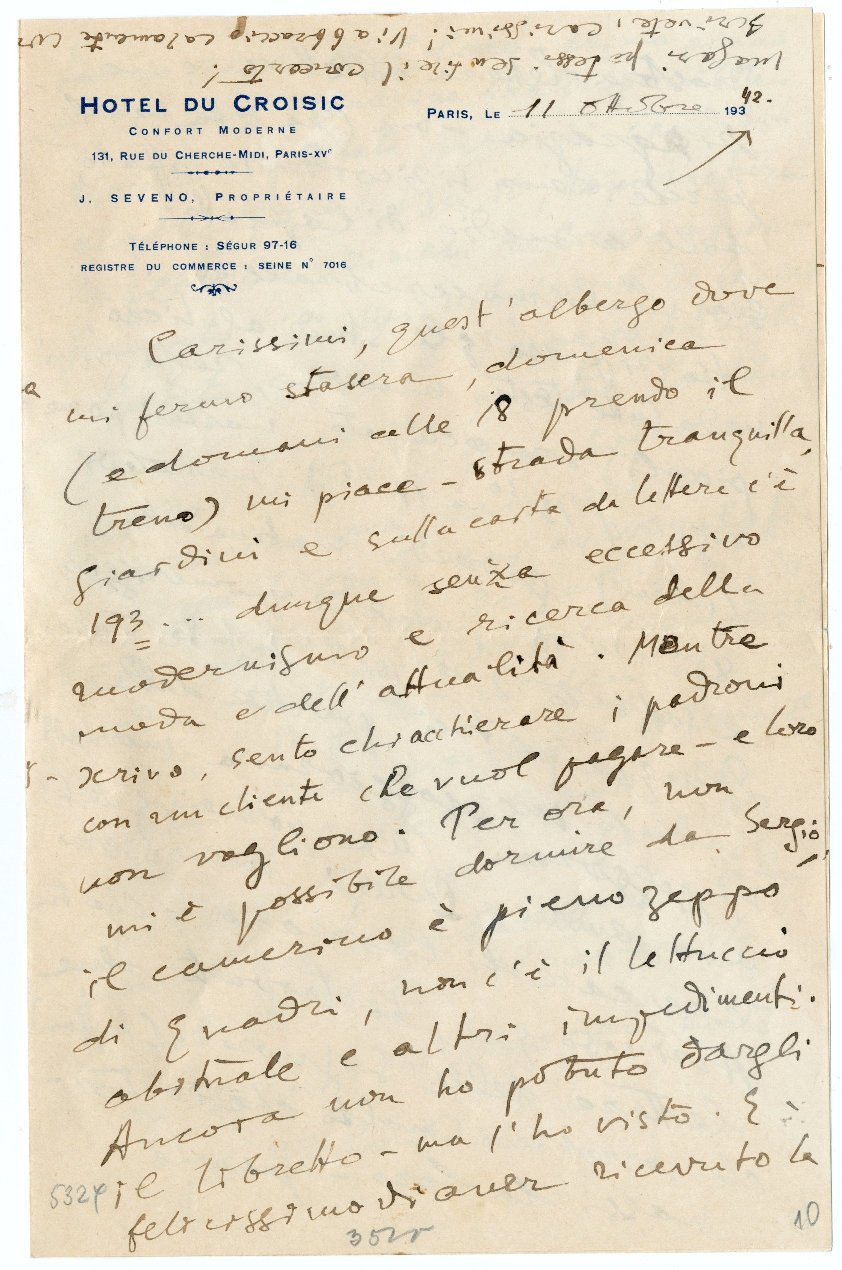 magari potessi sentire il concerto!
scrivete, carissimi! Vi abbraccio caramente
HOTEL DU CROISIC
CONFORT MODERNE
131, RUE DU CHERCHE-MIDI, PARIS-XVe
J. SEVENO, PROPRIÉTAIRE
TÉLÉPHONE : SÉGUR 97-16
REGISTRE DU COMMERCE : SEINE N° 7016
PARIS, LE 11 ottobre 193 42.
Carissimi, quest'albergo dove
mi fermo stasera, domenica
(e domani alle 18 prendo il
treno) mi piace - strada tranquilla,
giardini e sulla carta da lettere c'è
193 ... dunque senza eccessivo
modernismo e ricerca della
moda e dell'attualità. Mentre
scrivo, sento chiacchierare i padroni
con un cliente che vuol pagare - e loro
non vogliono. Per ora, non
mi è possibile dormire da Sergio,
il camerino è pieno zeppo
di quadri, non c'è il lettuccio
abituale e altri impedimenti.
Ancora non ho potuto dargli
il libretto - ma l'ho visto. E è
felicissimo di aver ricevuto la
5324
10